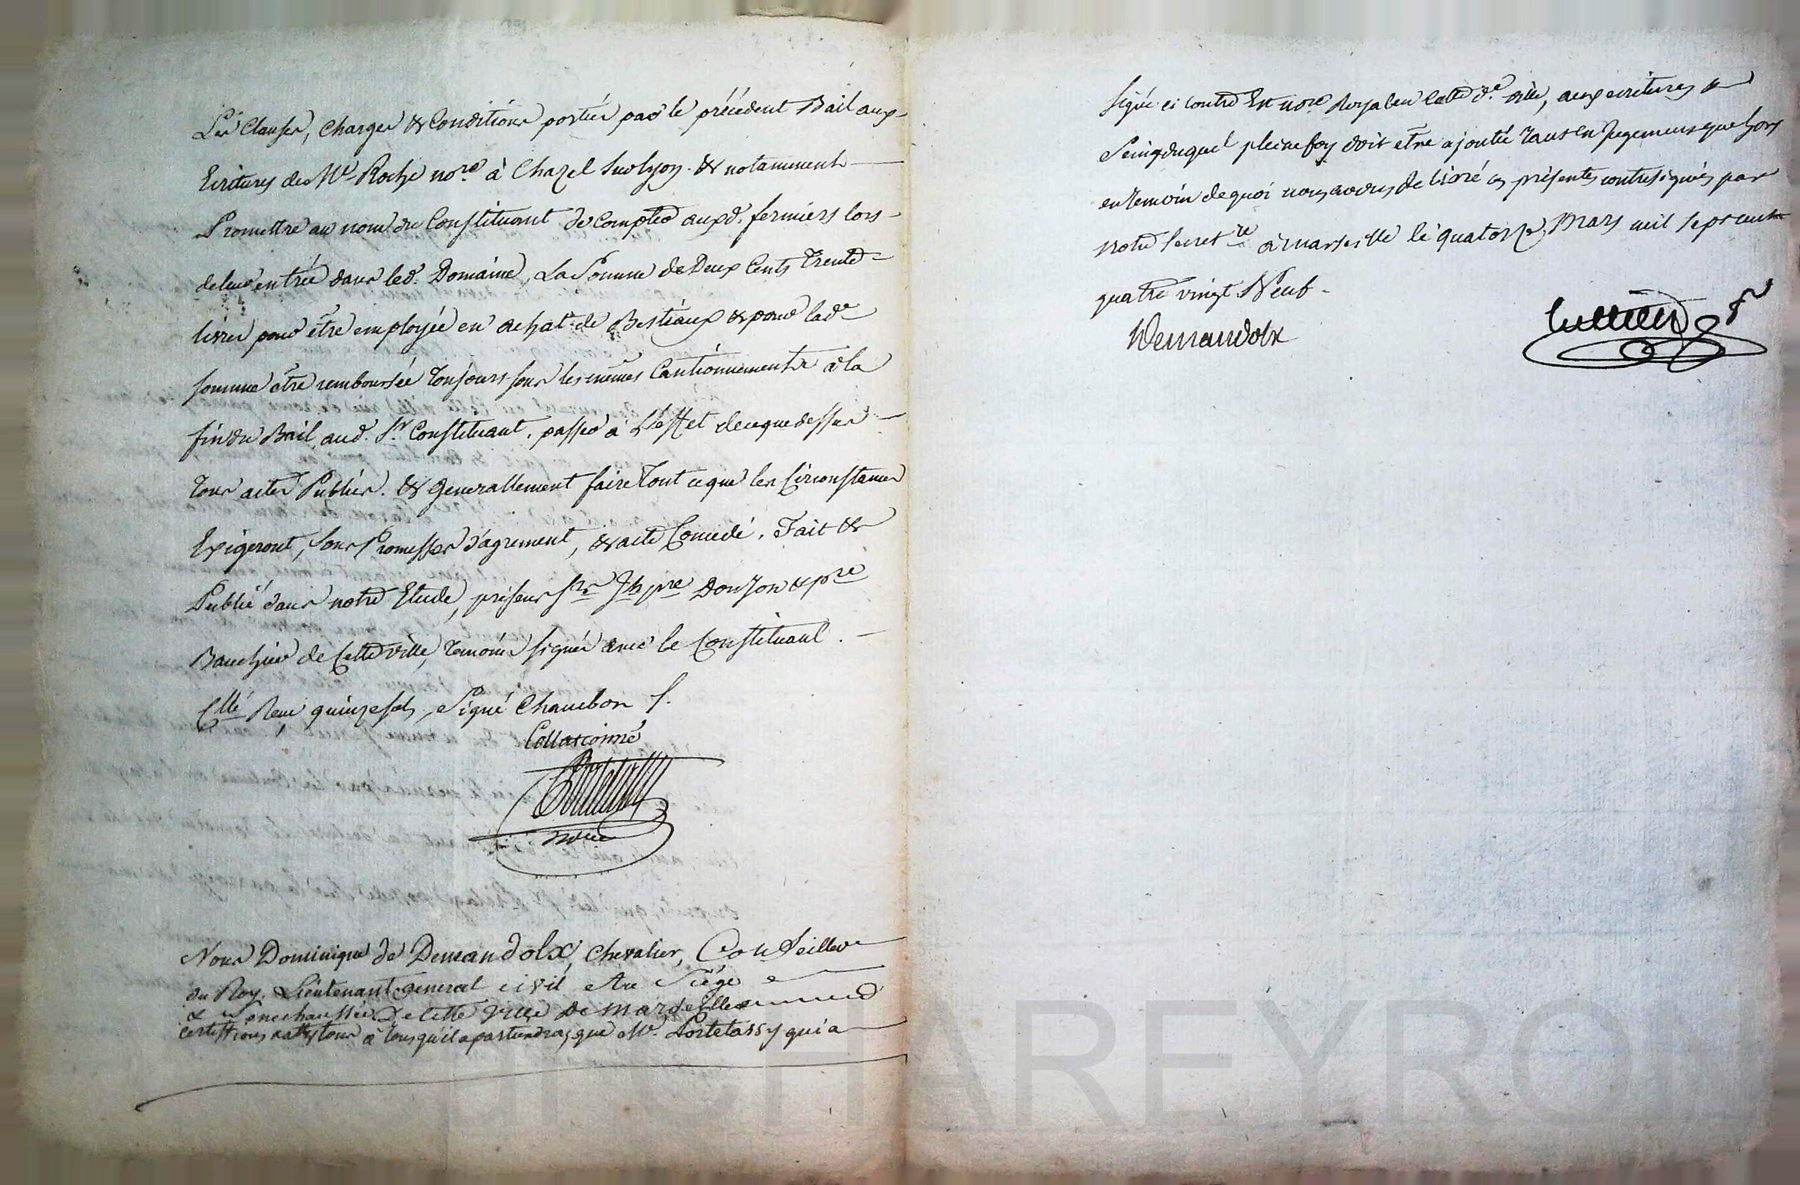 Les Clauses, Charges & Conditions portées par le précédent Bail aux
Ecritures de Me Roche nore à Chazel sur lyon. & notamment
Promettre au nom du Constituant de compter auxd. fermiers lors
de leur entrée dans led. Domaine, La Somme de Deux Cents Trente
livres pour être employée en achat de Bestiaux & pour lade
somme être remboursée toujours sous les mêmes Cautionnements à la
fin du Bail aud. Sr Constituant. passer à L'effet de ce que dessus
tous actes Publics. & generallement faire tout ce que les Circonstances
Exigeront, sous Promesses d'agrement, & acte Concedé. Fait &
Publié dans notre Etude, présens Srs Jh pre Donjon & pre
Bauchier de Cette ville, temoins signés avec le Constituant.
Cllé Reçu quinze sols, Signé Chambon f.
Collationné
nore
Nous Dominique de Demandolx, Chevalier, Conseiller
du Roy, Lieutenant general civil au Siége
& Senechaussée De cette Ville De Marseille
Certiffions & attestons à tous qu'il apartiendra, que Me Portetassy qui a
signé ci contre Est nore Royal en Cette de ville, aux ecritures &
Seing duquel pleine foy doit etre ajoutée tant en Jugement que hors
en temoin de quoi nous avons délivré ces présentes contresignées par
notre secretre à marseille le quatorze Mars mil sept cent
quatre vingt Neuf.
Demandolx